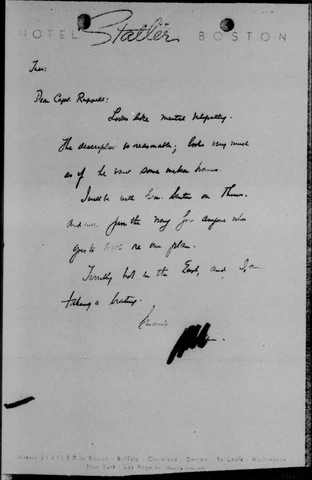 HOTEL Statler BOSTON
Tues:
Dear Capt. Ruppelt:
Looks like mental telepathy.
The description so reasonable; looks very much
as if he saw some meteor
I will be with Gen. on Thurs.
And will pass the way for anyone who
goes to re our plan.
Terribly hot in the East, and I'm
taking a beating.
Hotels STATLER in Boston - Buffalo - Cleveland - Detroit - St. Louis - Washington
New York - Los Angeles